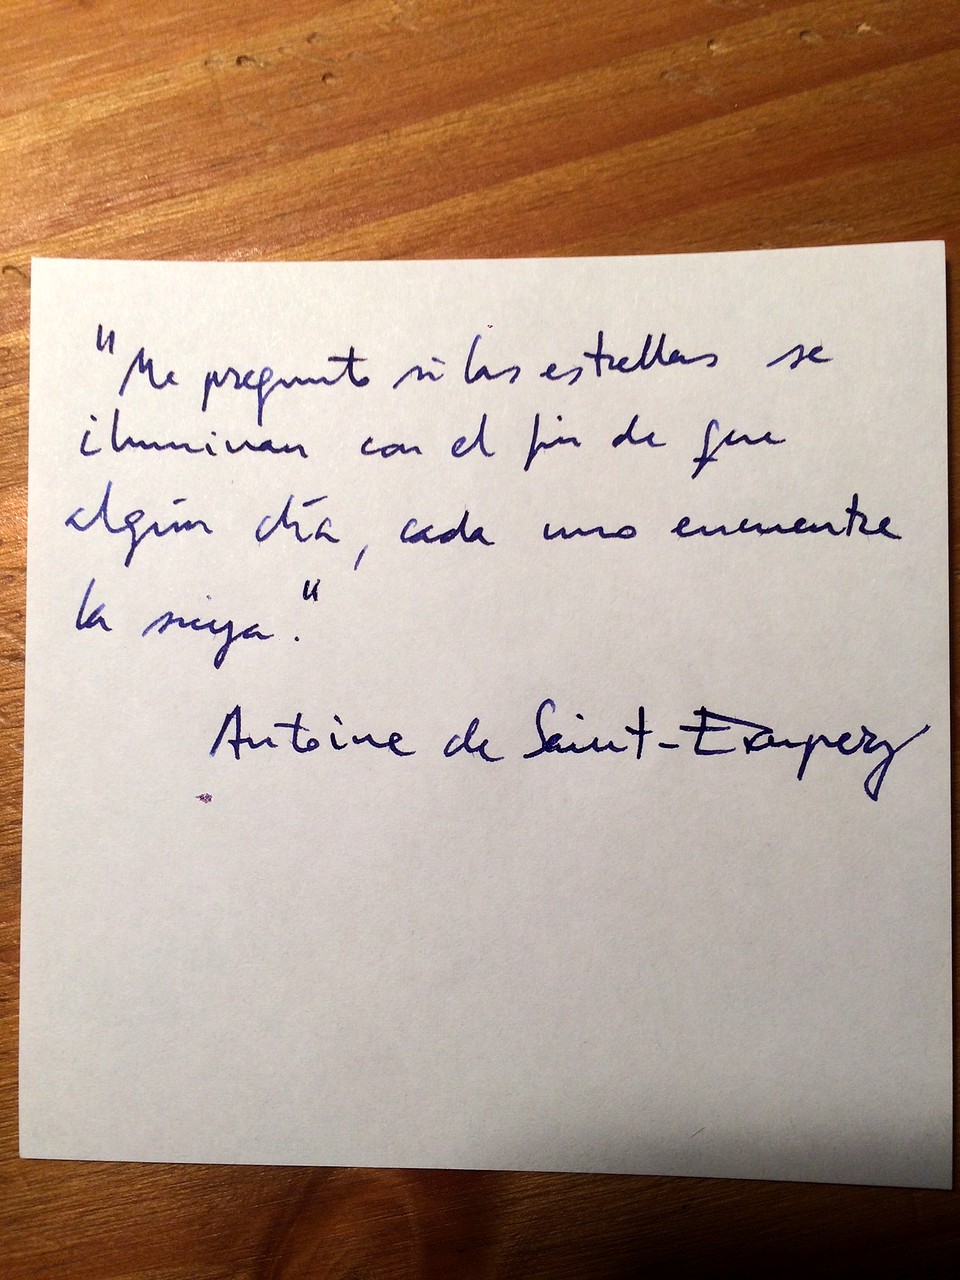 "Me pregunto si las estrellas se
iluminan con el fin de que
algún día, cada uno encuentre
la suya."
Antoine de Saint-Exupery